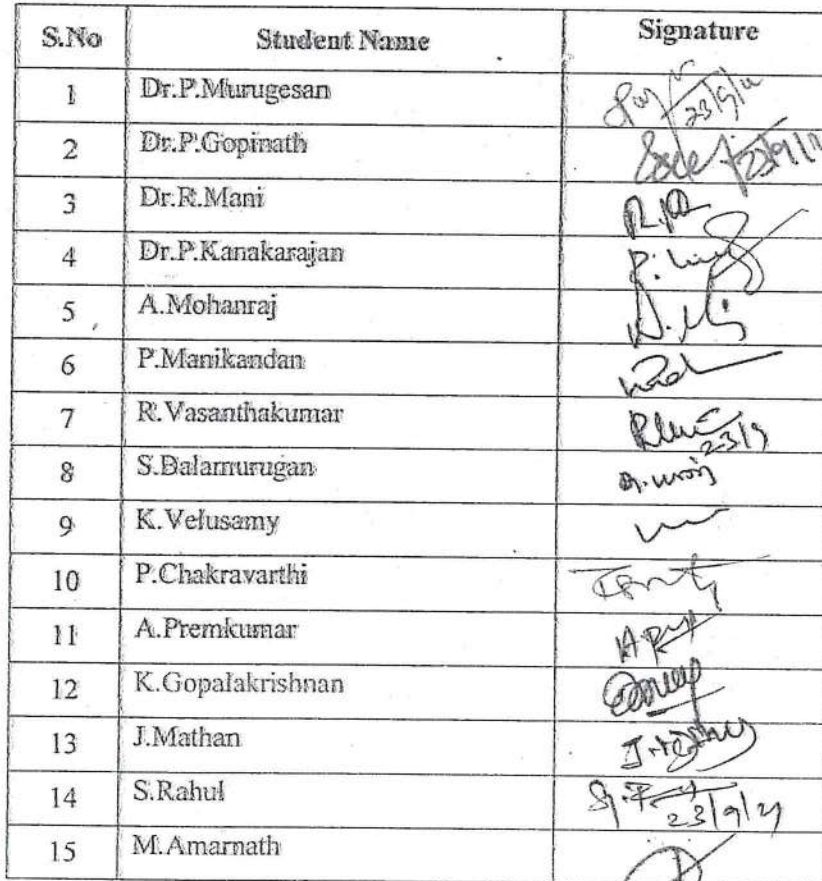 S.No Student Name Signature
1 Dr.P.Murugesan 23/9/
2 Dr.P.Gopinath 23/9/
3 Dr.R.Mani
4 Dr.P.Kanakarajan
5 A.Mohanraj
6 P.Manikandan
7 R.Vasanthakumar 23/9
8 S.Balamurugan
9 K.Velusamy
10 P.Chakravarthi
11 A.Premkumar
12 K.Gopalakrishnan
13 J.Mathan
14 S.Rahul 23/9/21
15 M.Amarnath